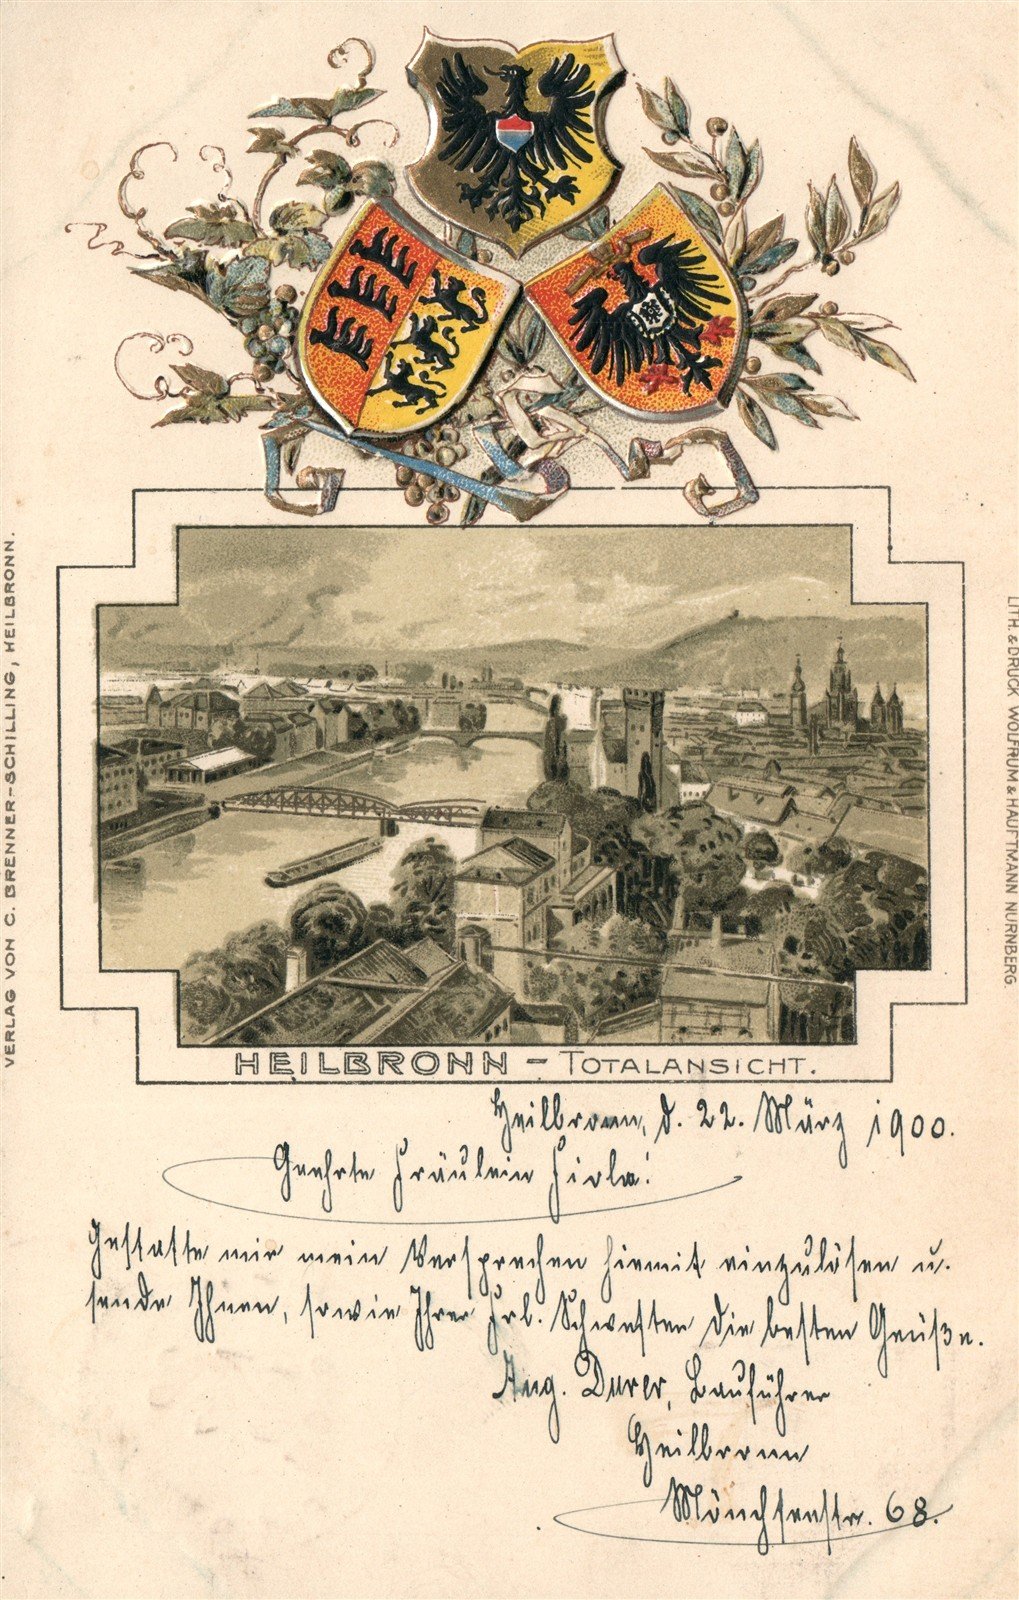 VERLAG VON C. BRENNER-SCHILLING, HEILBRONN.
LITH. & DRUCK WOLFRUM & HAUPTMANN NÜRNBERG.
HEILBRONN – TOTALANSICHT.
Heilbronn, d. 22. März 1900.
Geehrte Fräulein Fiola!
Gestatte mir mein Versprechen hiemit einzulösen u.
sende Ihnen, sowie Ihrer Frl. Schwester die besten Grüße.
Aug. Durer, Bauführer
Heilbronn
Mönchseestr. 68.